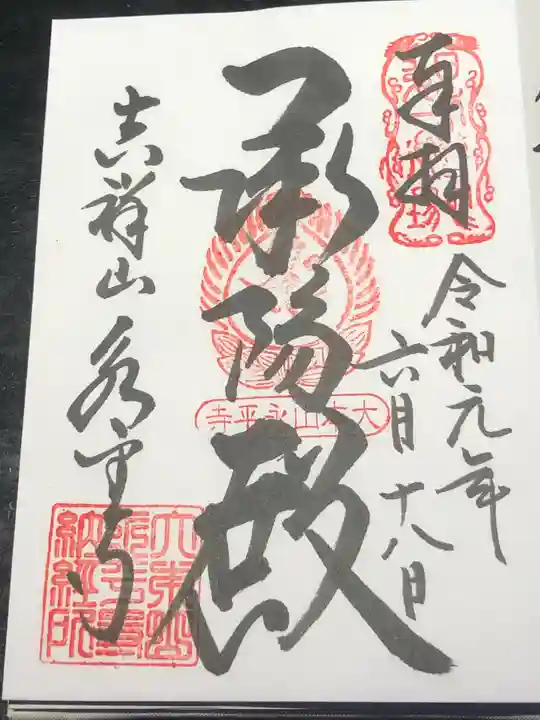 奉拝
令和元年
六月十八日
承陽殿
大本山永平寺
吉祥山永平寺